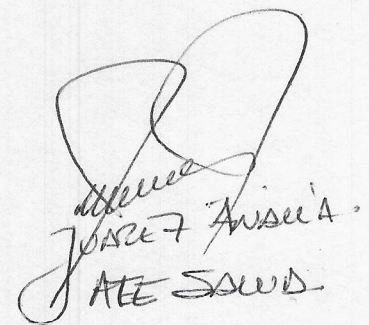 JUAREZ ANALÍA.
ATE SALUD